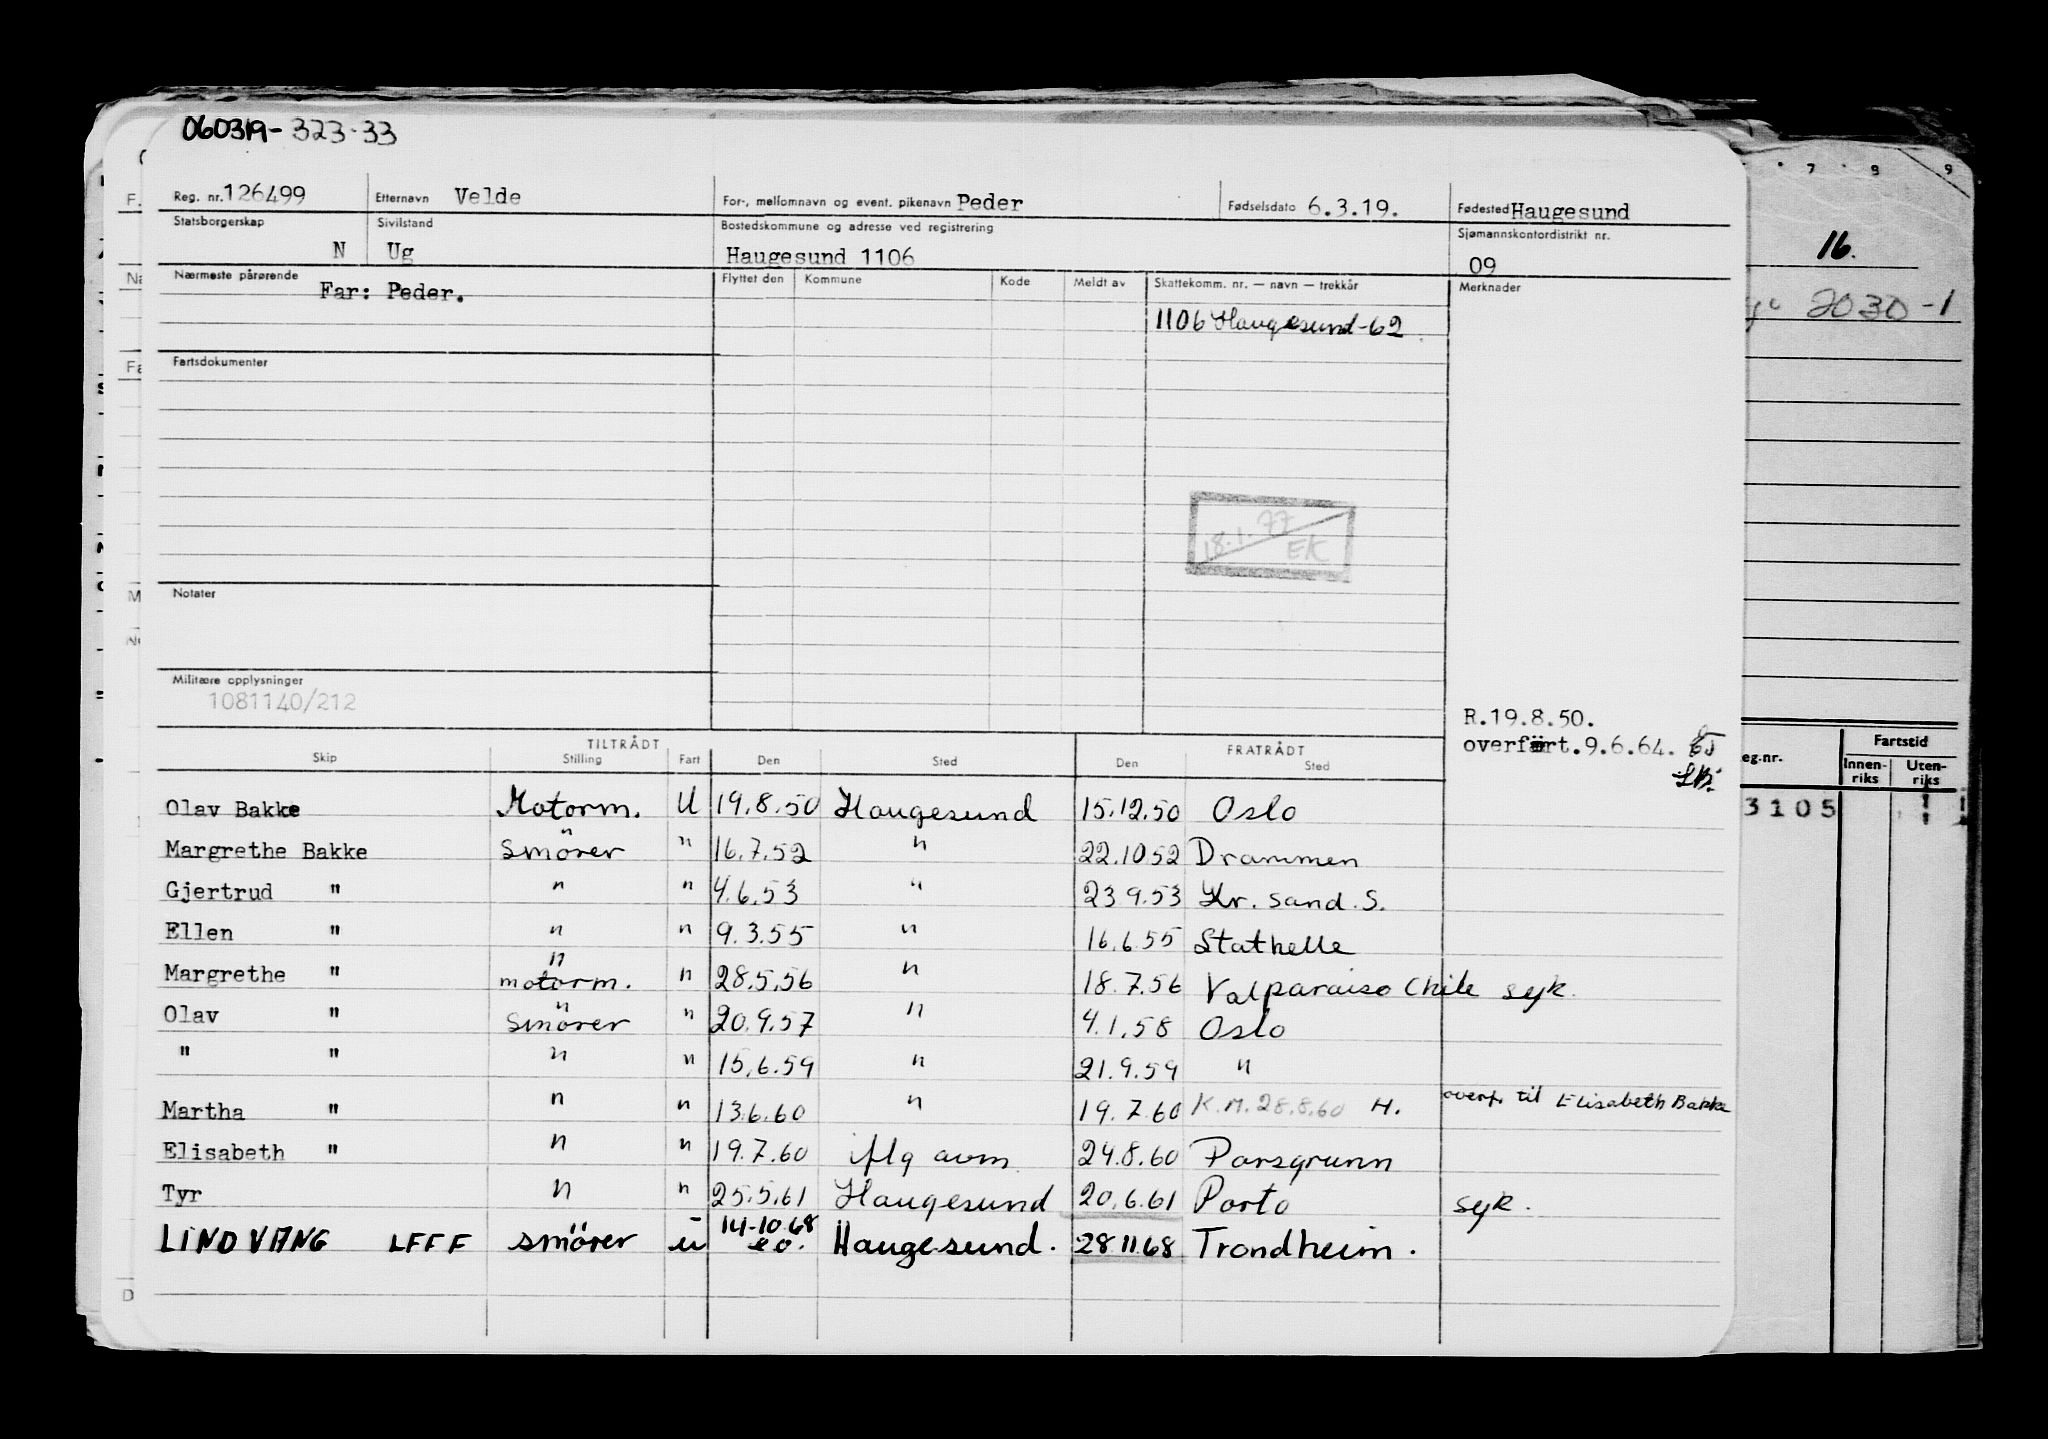 060319-323-33
Reg. nr. 126499 Etternavn Velde For-, mellomnavn og event. pikenavn Peder Fødselsdato 6.3.19. Fødested Haugesund
Statsborgerskap N Sivilstand Ug Bostedskommune og adresse ved registrering Haugesund 1106 Sjømannskontordistrikt nr. 09
Nærmeste pårørende Far: Peder. Flyttet den Kommune Kode Meldt av Skattekomm. nr. — navn — trekkår Merknader
1106 Haugesund-62
Fartsdokumenter
18.1.77 EK
Notater
Militære opplysninger
1081140/212
R.19.8.50.
overført.9.6.64.
TILTRÅDT FRATRÅDT
Skip Stilling Fart Den Sted Den Sted
Olav Bakke Motorm. U 19.8.50 Haugesund 15.12.50 Oslo
Margrethe Bakke Smörer " 16.7.52 " 22.10 52 Drammen
Gjertrud " " " 4.6.53 " 23 9.53 Kr. sand. S.
Ellen " " " 9.3.55 " 16.6.55 Stathelle
Margrethe " motorm. " 28.5.56 " 18.7.56 Valparaiso Chile syk.
Olav " Smörer " 20.9.57 " 4.1.58 Oslo
" " " " 15.6.59 " 21.9.59 "
Martha " " " 13.6.60 " 19.7.60 K.M. 28.8.60 H. overf. til Elisabeth Bakke
Elisabeth " " " 19.7.60 iflg avm 24.8.60 Porsgrunn
Tyr " " 25.5.61 Haugesund 20.6.61 Porto syk.
LINDVANG LFFF smörer u 14-10.68 Haugesund. 28 11.68 Trondheim.
7 8 9
16.
2030-1
eg.nr. Fartstid
Innen-riks Uten-riks
3105